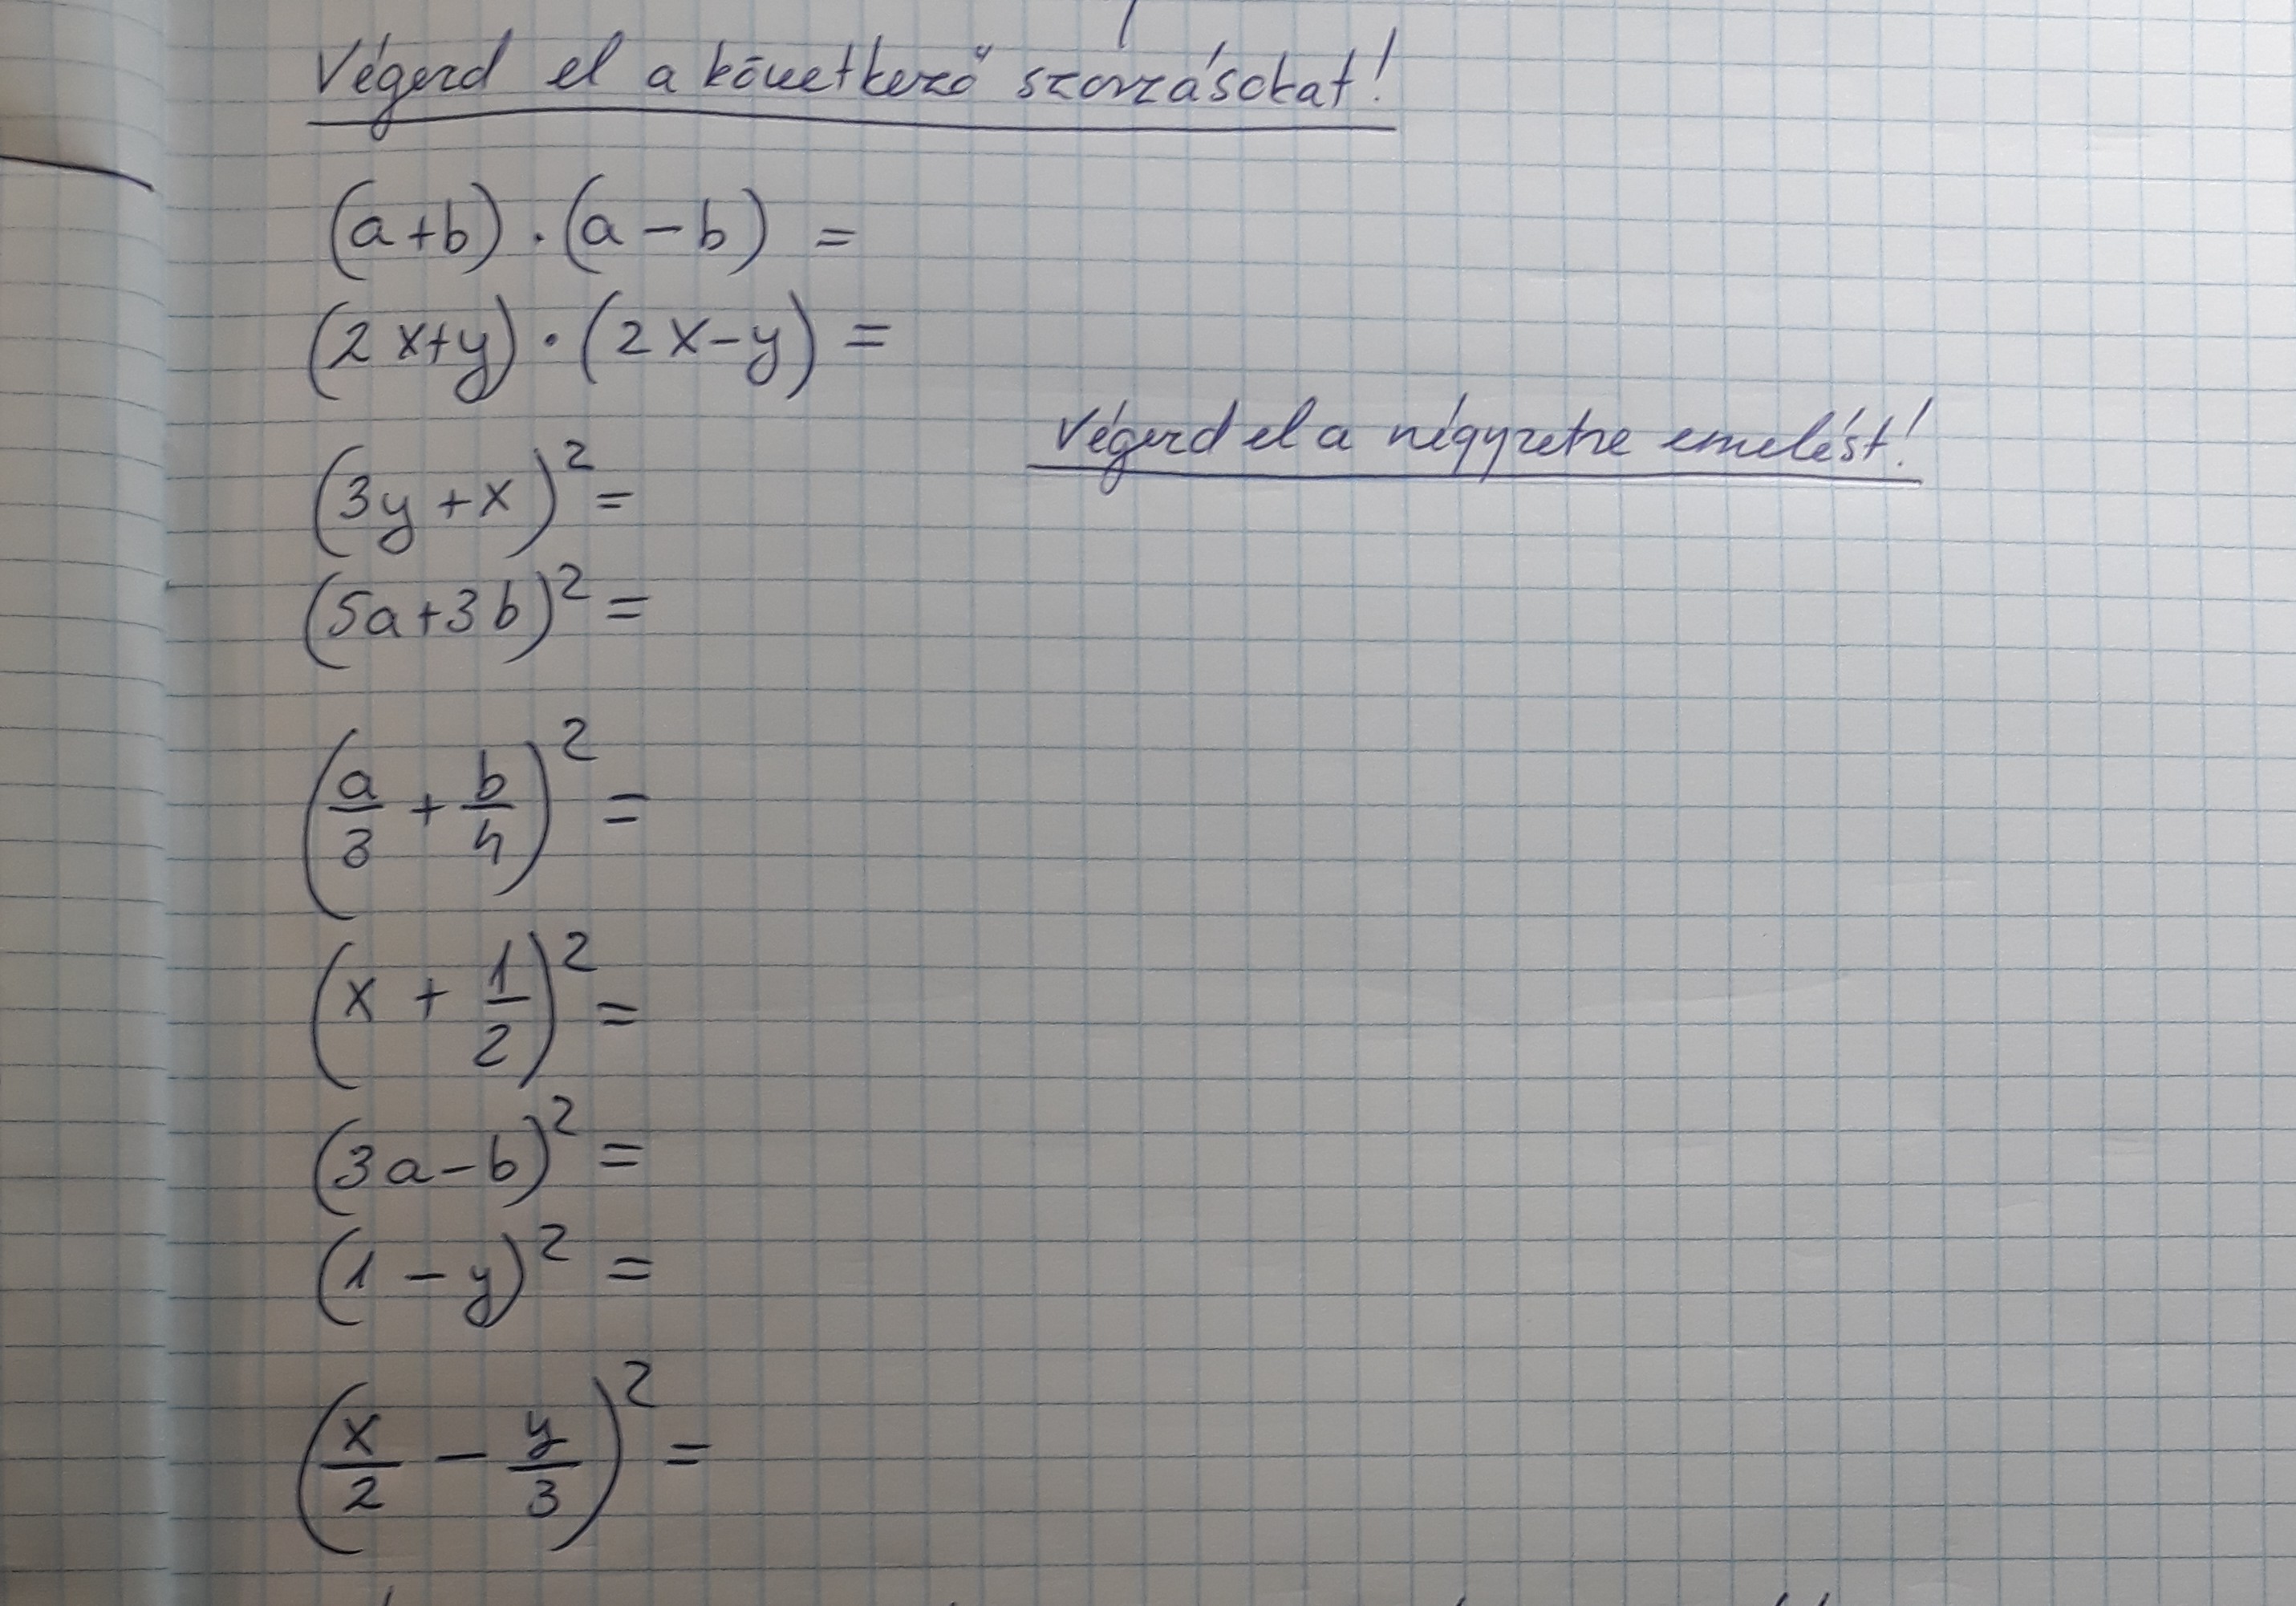 Végezd el a következő szorzásokat!
(a+b)·(a-b) =
(2x+y)·(2x-y) =
Végezd el a négyzetre emelést!
(3y+x)² =
(5a+3b)² =
(a/3 + b/4)² =
(x + 1/2)² =
(3a-b)² =
(1-y)² =
(x/2 - y/3)² =